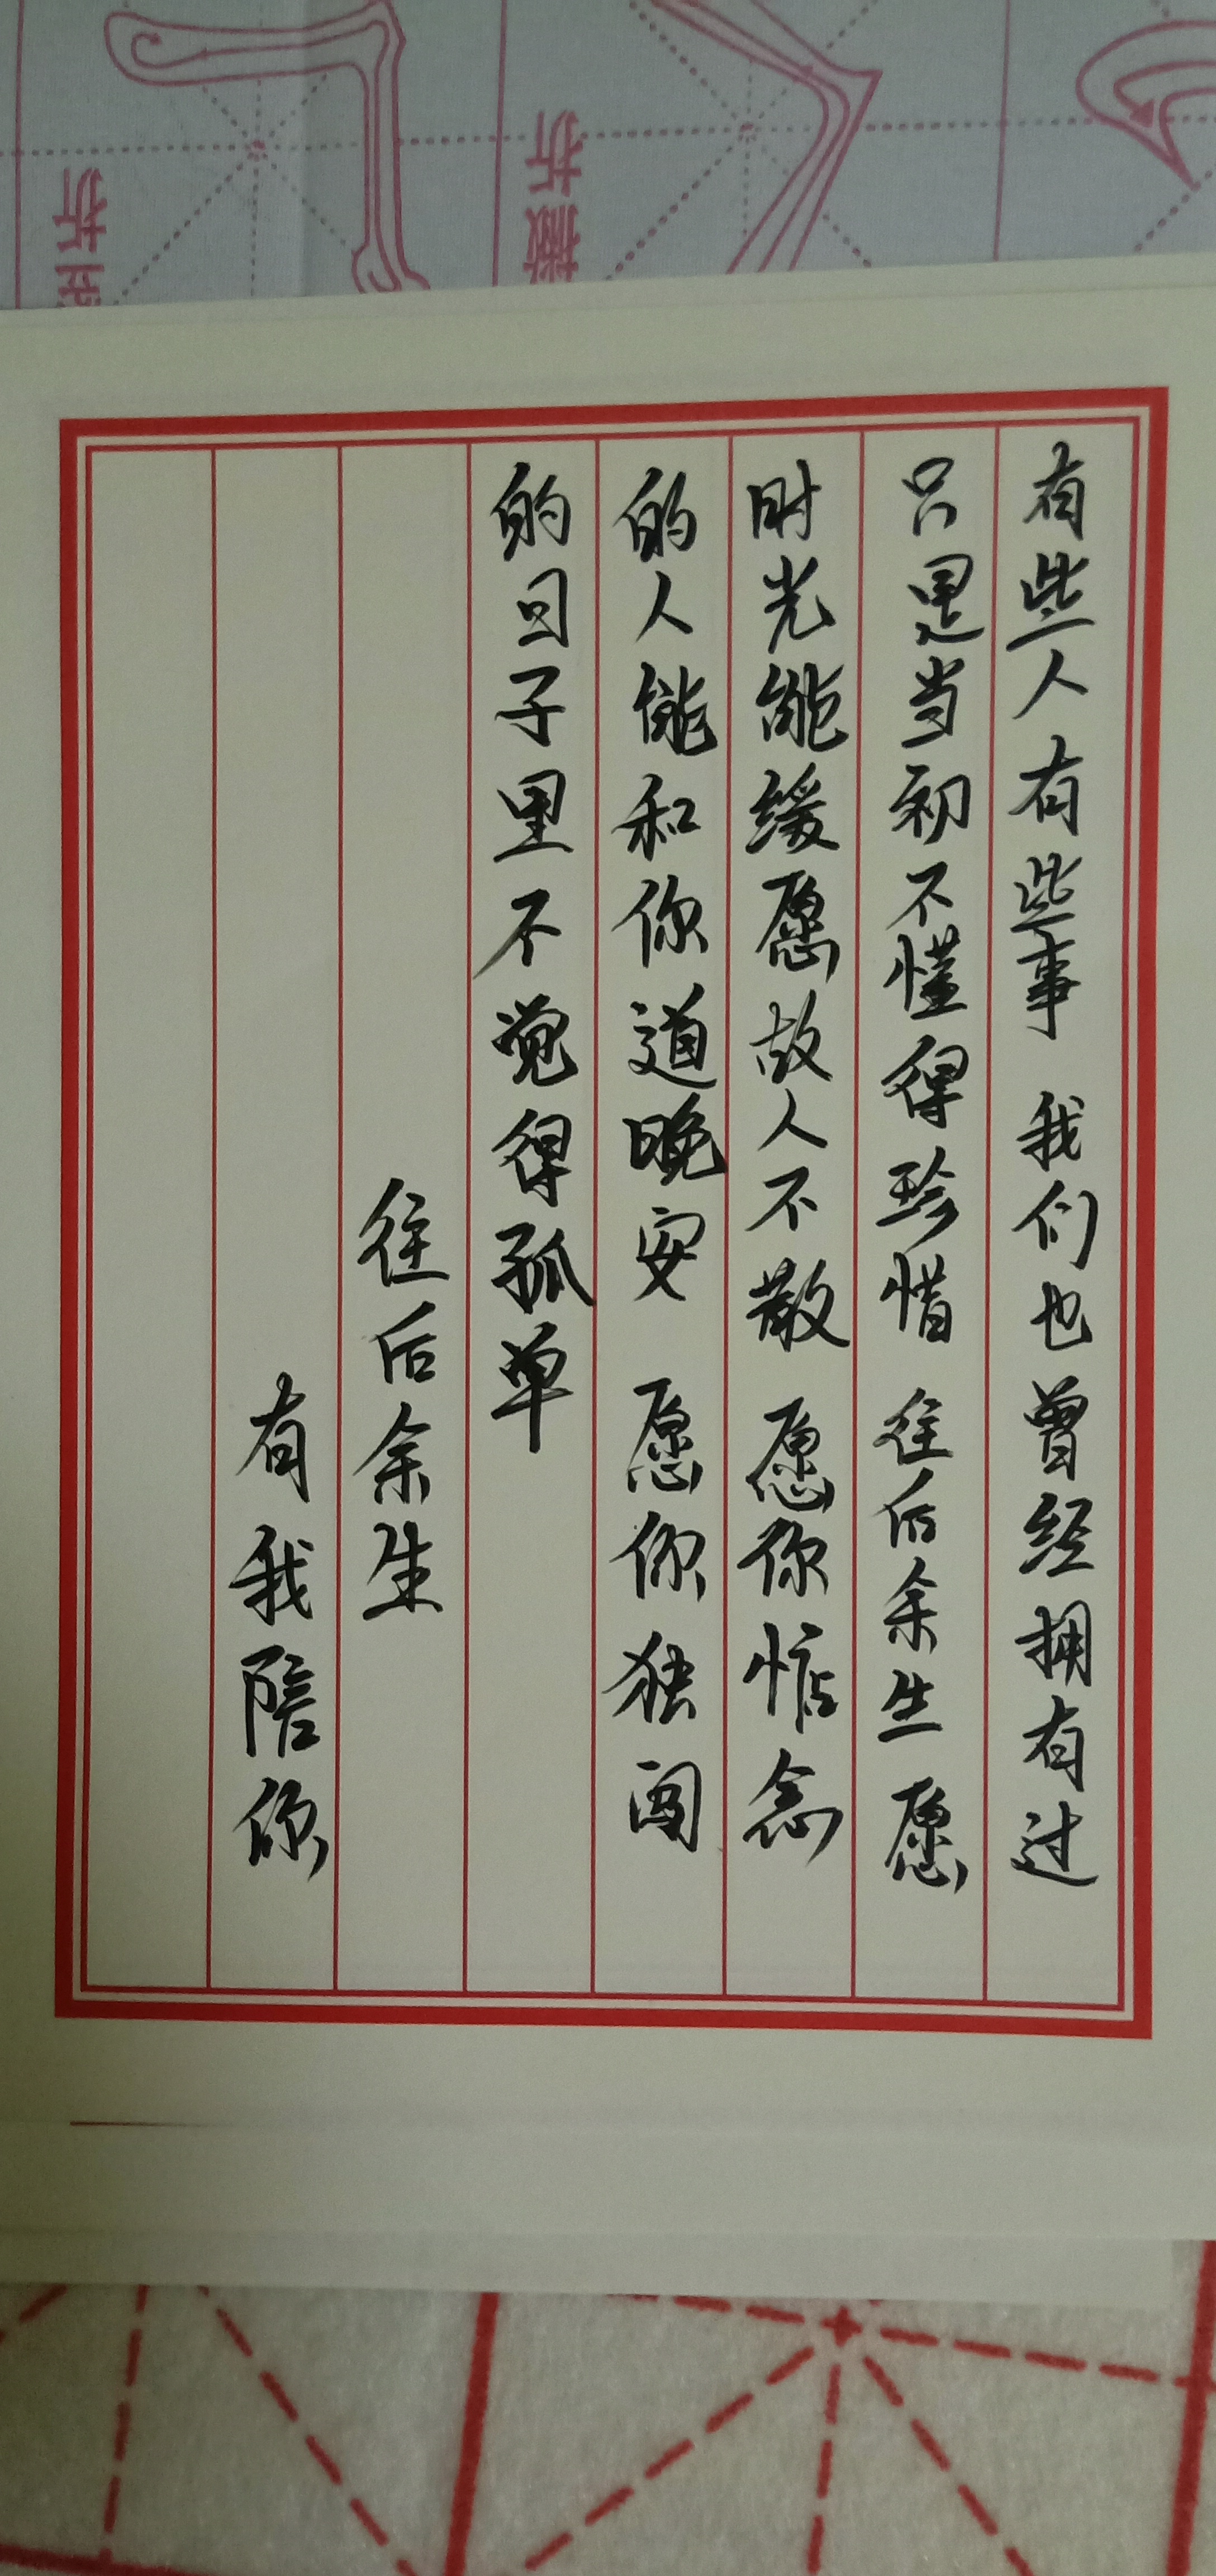 有些人有些事 我们也曾经拥有过
只是当初不懂得珍惜 往后余生 愿
时光能缓愿故人不散 愿你惦念
的人能和你道晚安 愿你独闯
的日子里不觉得孤单
往后余生
有我陪你
折
折